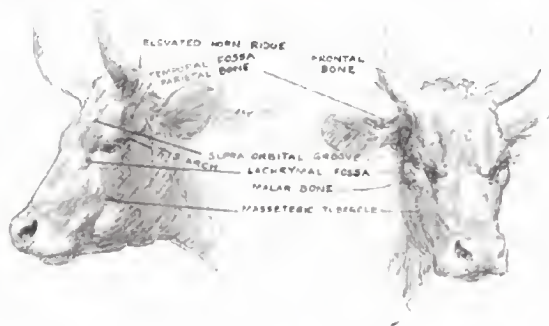 ELEVATED HORN RIDGE
TEMPORAL FOSSA
PARIETAL BONE
FRONTAL
BONE
SUPRA ORBITAL GROOVE
ITS ARCH
LACHRYMAL FOSSA
MALAR BONE
MASSETERIC TUBERCLE